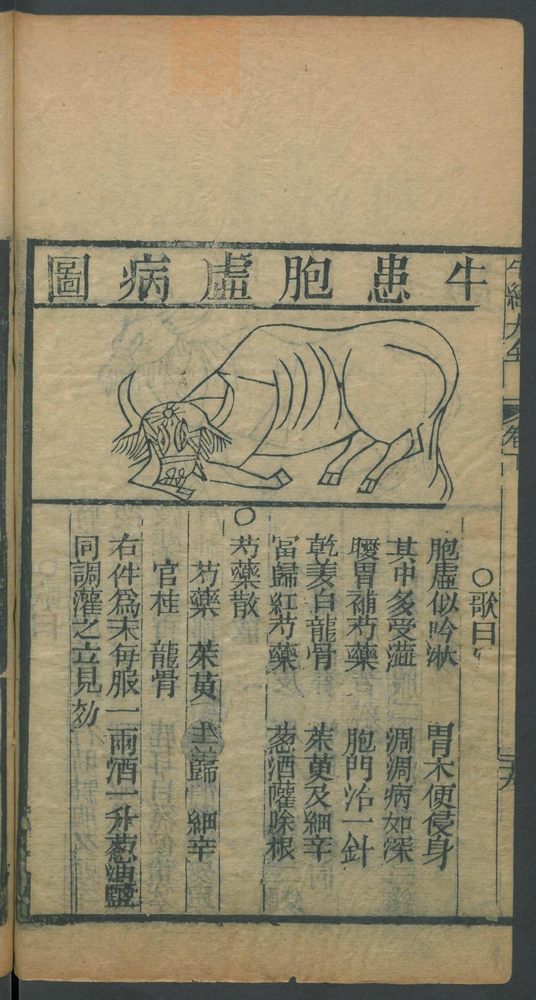 牛患胞虛病圖
○歌曰
胞虛似吟淋 胃木便侵身
其中多受溢 涸涸病如深
腰胃補芍藥 胞門治一針
乾姜白龍骨 茱萸及細辛
當歸紅芍藥 葱酒嚾除根
○芍藥散
芍藥 茱萸 歸 細辛
官桂 龍骨
右件為末每服一兩酒一升葱油鹽
同調灌之立見効